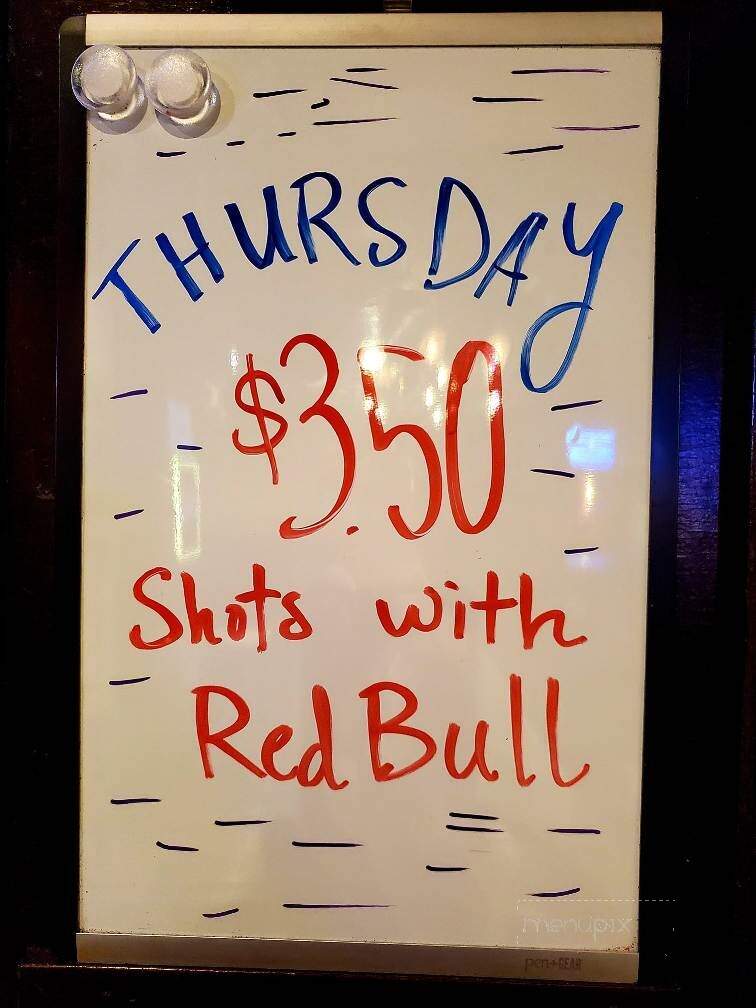 THURSDAY
$3.50
Shots with
Red Bull
menupix
pen+GEAR